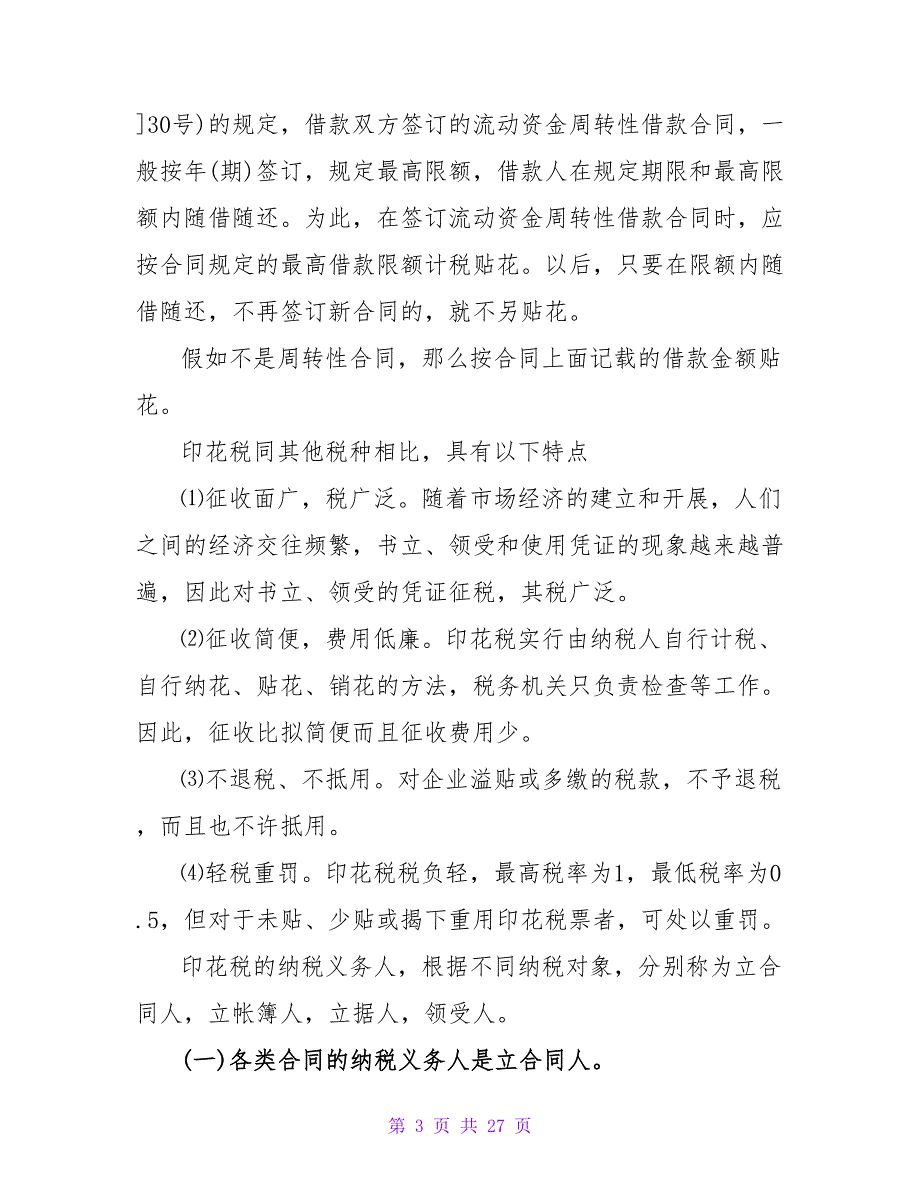 ]30号)的规定，借款双方签订的流动资金周转性借款合同，一
般按年(期)签订，规定最高限额，借款人在规定期限和最高限
额内随借随还。为此，在签订流动资金周转性借款合同时，应
按合同规定的最高借款限额计税贴花。以后，只要在限额内随
借随还，不再签订新合同的，就不另贴花。
假如不是周转性合同，那么按合同上面记载的借款金额贴
花。
印花税同其他税种相比，具有以下特点
⑴征收面广，税广泛。随着市场经济的建立和开展，人们
之间的经济交往频繁，书立、领受和使用凭证的现象越来越普
遍，因此对书立、领受的凭证征税，其税广泛。
⑵征收简便，费用低廉。印花税实行由纳税人自行计税、
自行纳花、贴花、销花的方法，税务机关只负责检查等工作。
因此，征收比拟简便而且征收费用少。
⑶不退税、不抵用。对企业溢贴或多缴的税款，不予退税
，而且也不许抵用。
⑷轻税重罚。印花税税负轻，最高税率为1，最低税率为0
.5，但对于未贴、少贴或揭下重用印花税票者，可处以重罚。
印花税的纳税义务人，根据不同纳税对象，分别称为立合
同人，立帐簿人，立据人，领受人。
(一)各类合同的纳税义务人是立合同人。
第 3 页 共 27 页